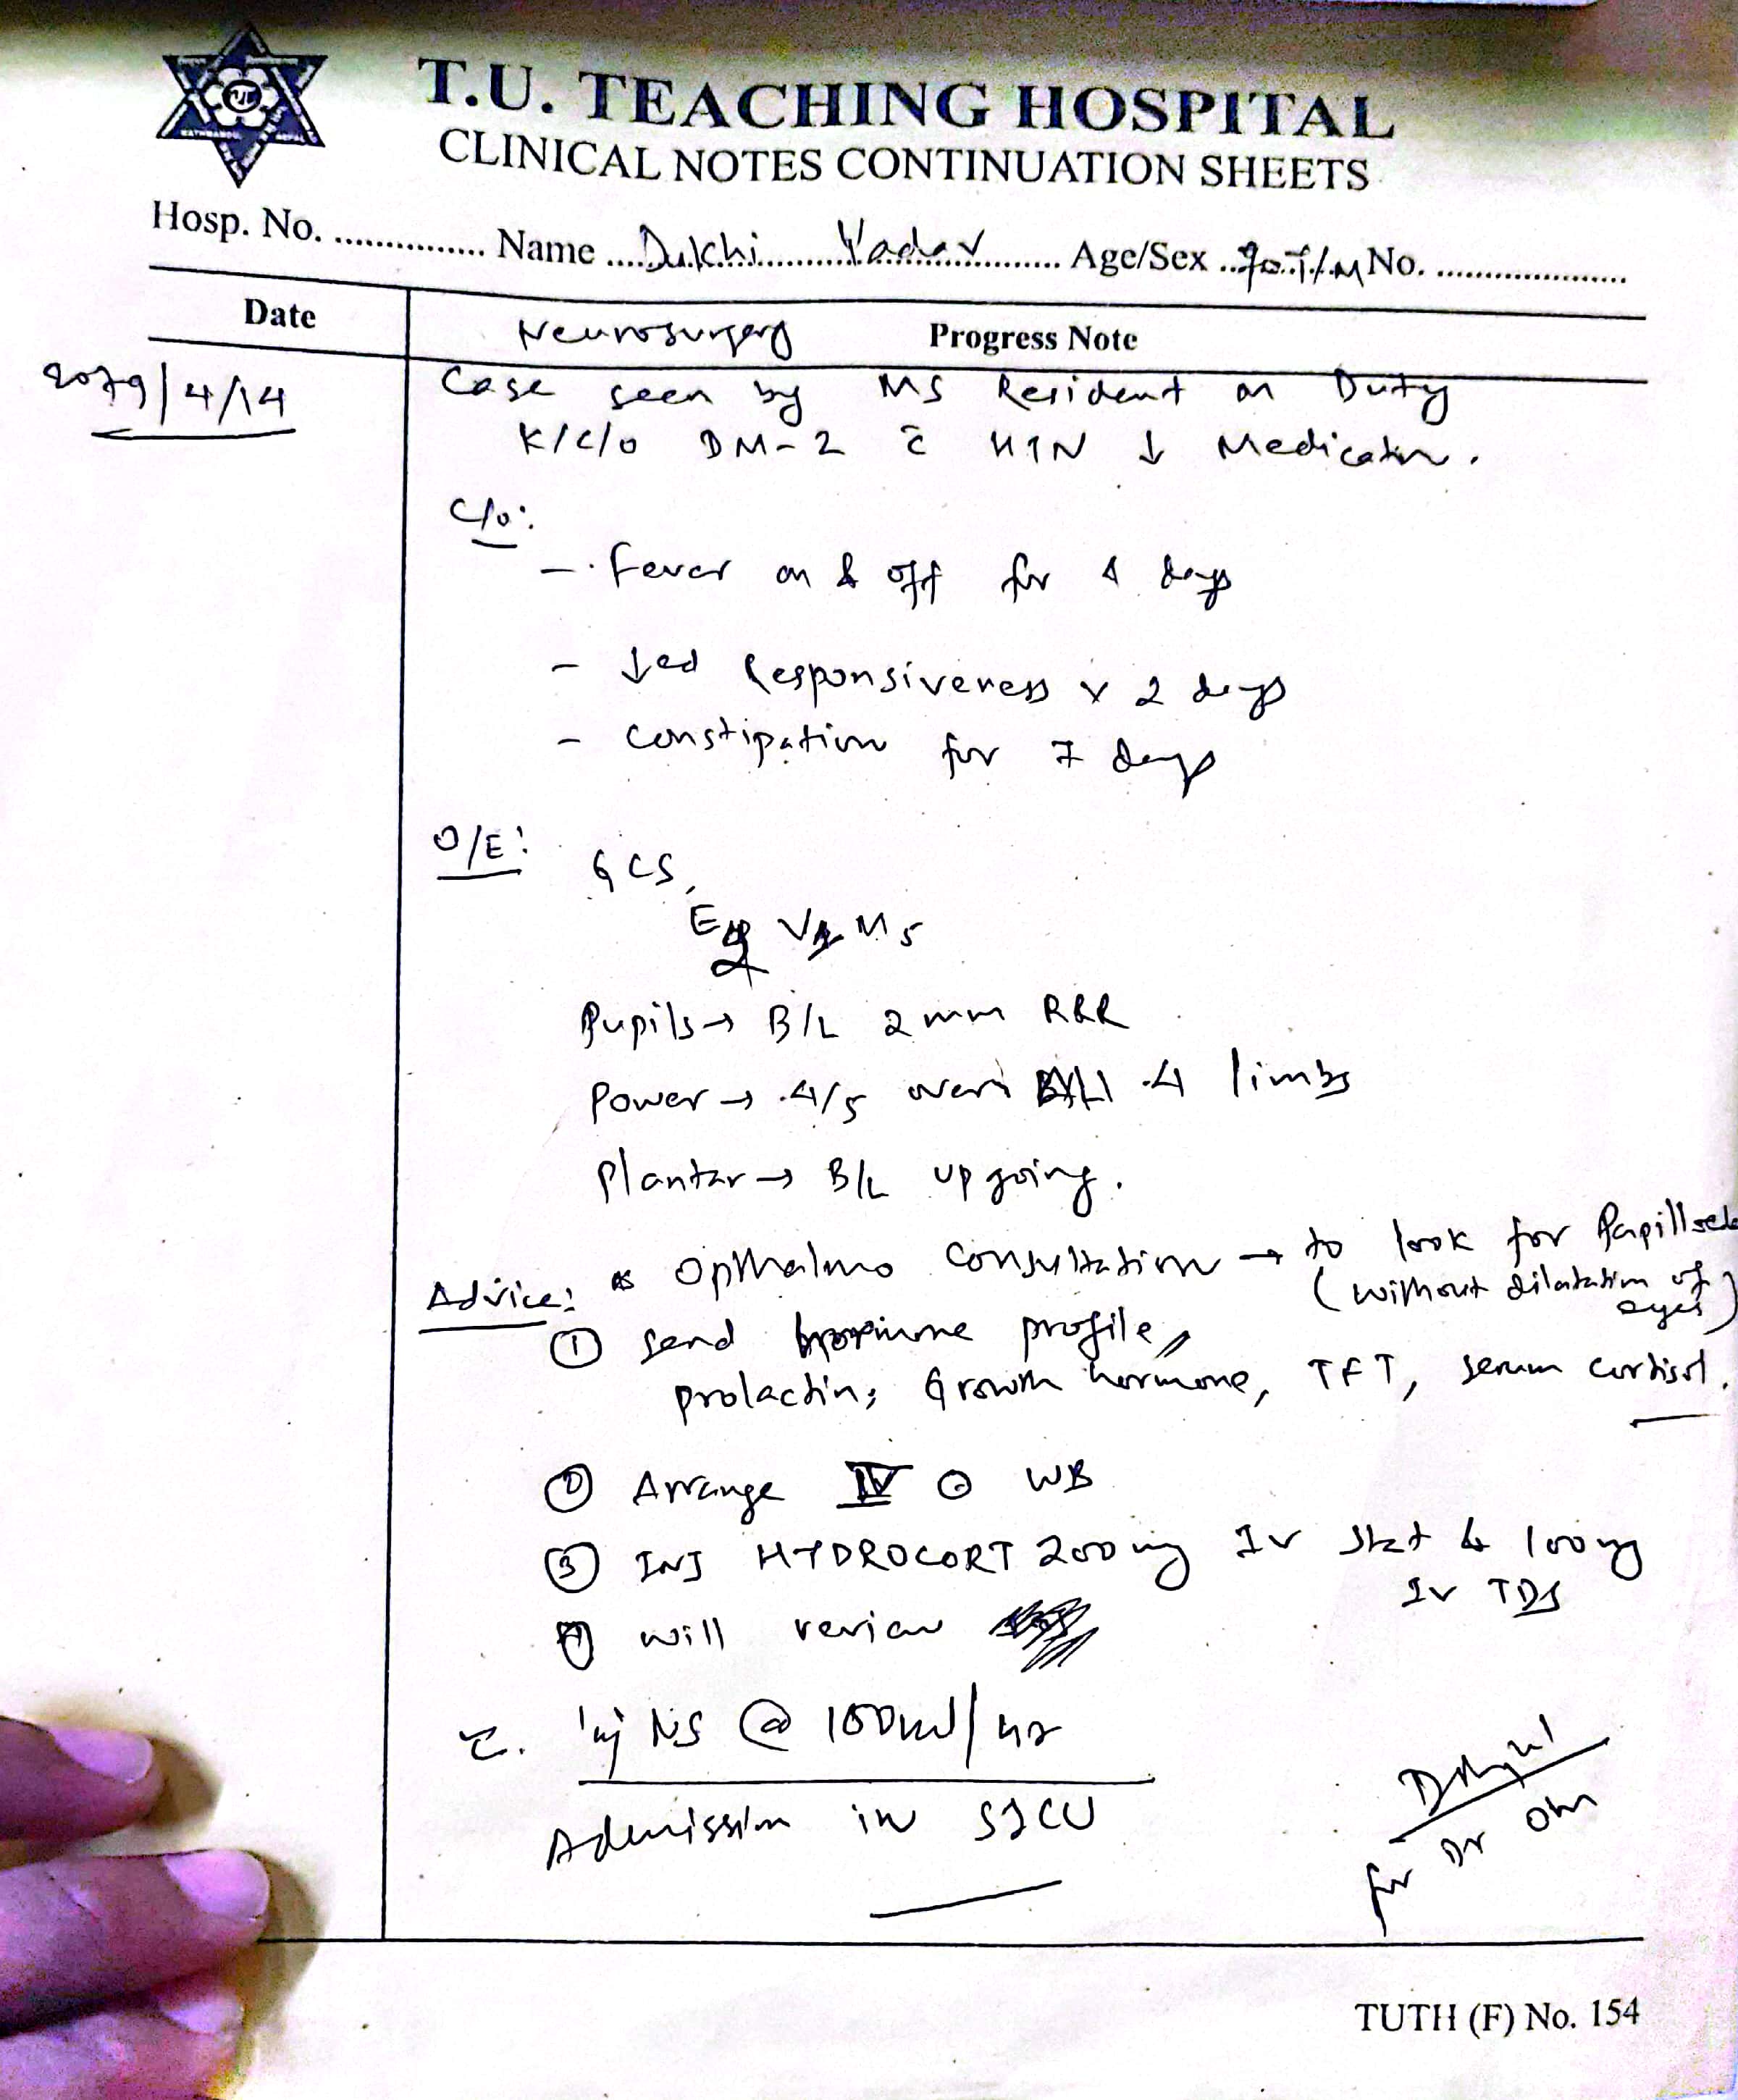 T.U. TEACHING HOSPITAL
CLINICAL NOTES CONTINUATION SHEETS
Hosp. No. ............... Name ....Dukhi.........Yadav......... Age/Sex ..70Y/M No. ....................
Date Neurosurgery Progress Note
2079/4/14 Case seen by MS Resident on Duty
K/C/O DM-2 c̄ HTN ↓ Medication.
C/o:
- Fever on & off for 4 days
- ↓ed Responsiveness x 2 days
- Constipation for 7 days
O/E: GCS,
E V M5
Pupils → B/L 2mm RRR
Power → 4/5 over All 4 limbs
Plantar → B/L upgoing.
Advice: * Opthalmo consultation → to look for
(without dilatation of eyes)
① Send hormone profile,
prolactin, Growth hormone, TFT, serum cortisol.
② Arrange IV ⊙ WB
③ INJ HYDROCORT 200mg IV stat & 100mg
IV TDS
④ will review
inj NS @ 100ml/hr
Admission in SICU
for Dr Om
TUTH (F) No. 154